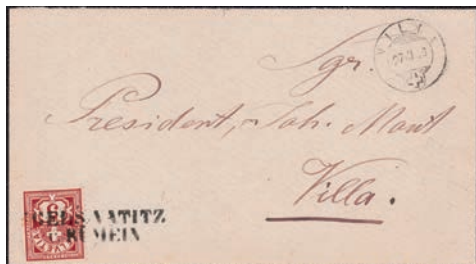 VILLA
Sgr.
President, Joh. Mont
Villa.
IGELS,VATITZ
u. RUMEIN